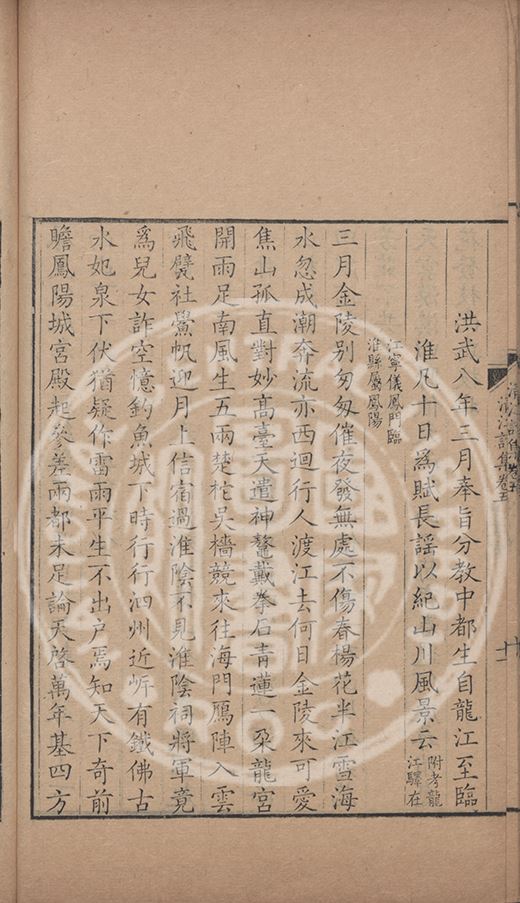 洪武八年三月奉旨分教中都生自龍江至臨
淮凡十日爲賦長謡以紀山川風景云附考龍江驛在
江寧儀鳳門臨淮縣屬鳳陽
三月金陵别匆匆催夜發無處不傷春楊花半江雪海
水忽成潮奔流亦西迴行人渡江去何日金陵來可愛
焦山孤直對妙高臺天遣神鼇戴拳石青蓮一朶龍宫
開雨足南風生五兩楚柁吳檣競來往海門鴈陣入雲
飛甓社鱟帆迎月上信宿過淮陰不見淮陰祠將軍竟
爲兒女詐空憶釣魚城下時行行泗州近岸有鐵佛古
水如泉下伏猶疑作雷雨平生不出户焉知天下奇前
瞻鳳陽城宮殿起參差兩都未足論天啓萬年基四方
集卷五
十一